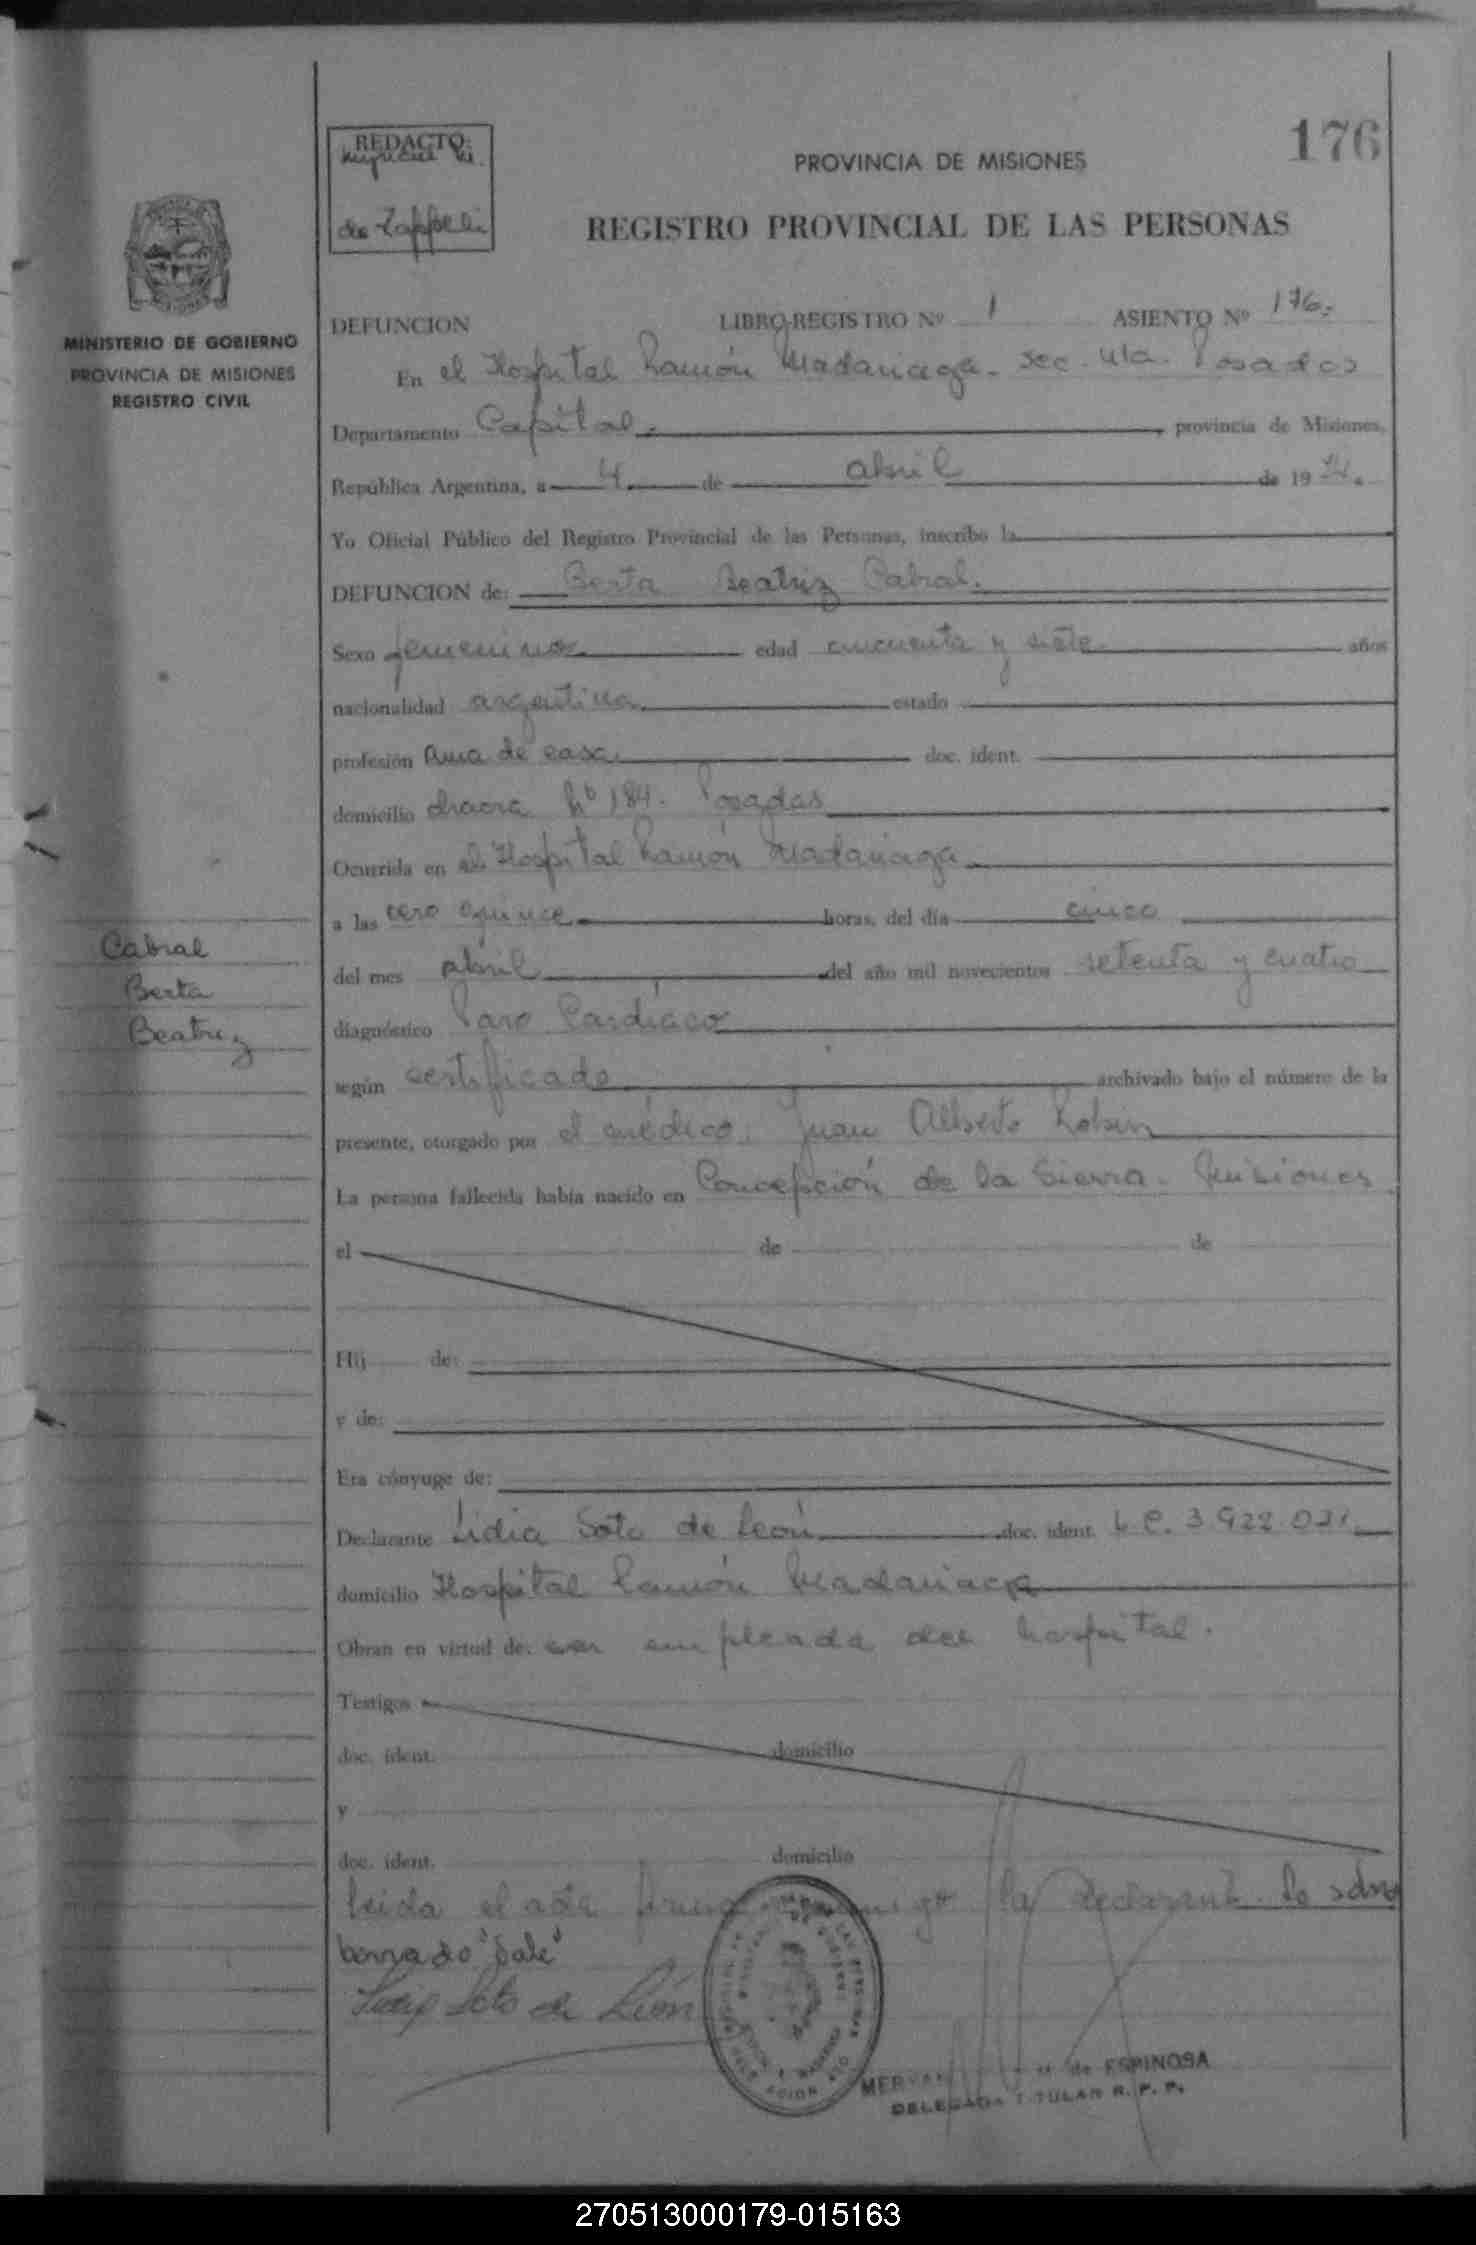 176
REDACTO:
de Zappelli
PROVINCIA DE MISIONES
REGISTRO PROVINCIAL DE LAS PERSONAS
MINISTERIO DE GOBIERNO
PROVINCIA DE MISIONES
REGISTRO CIVIL
DEFUNCION LIBRO-REGISTRO Nº 1 ASIENTO Nº 176.
En el Hospital Ramón Madariaga. sec. 4ta. Posadas
Departamento Capital. , provincia de Misiones,
República Argentina, a 4 de abril de 19 74.
Yo Oficial Público del Registro Provincial de las Personas, inscribo la
DEFUNCION de: Berta Beatriz Cabral.
Sexo femenino edad cincuenta y siete años
nacionalidad argentina estado
profesión ama de casa doc. ident.
domicilio chacra Nº 184. Posadas
Ocurrida en el Hospital Ramón Madariaga
a las cero quince horas, del día cinco
del mes abril del año mil novecientos setenta y cuatro
diagnóstico Paro Cardíaco
según certificado archivado bajo el número de la
presente, otorgado por el médico: Juan Alberto
La persona fallecida había nacido en Concepción de la Sierra. Misiones.
el de de
Hij de:
y de:
Era cónyuge de:
Declarante Lidia Soto de León doc. ident. L.C. 3.922.021
domicilio Hospital Ramón Madariaga
Obran en virtud de: ser empleada del hospital.
Testigos
doc. ident. domicilio
y
doc. ident. domicilio
leida el acta firma conmigo la declarante. Lo sobre
borrado "Vale"
Lidia Soto de León
Cabral
Berta
Beatriz
de ESPINOSA
DELEGADA TITULAR R. P. P.
270513000179-015163